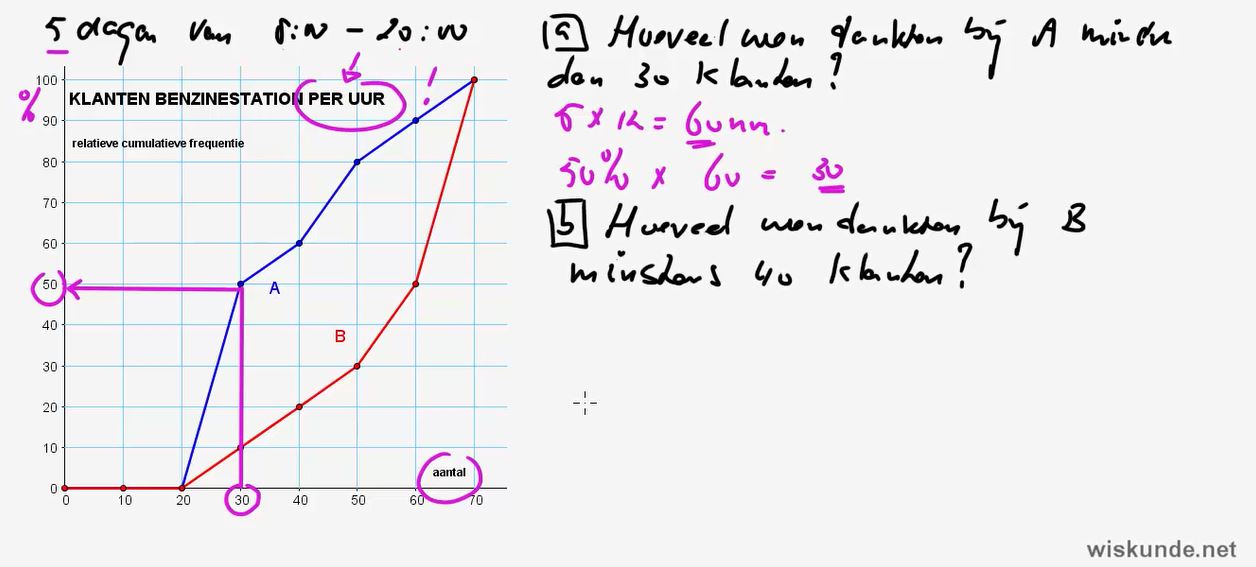 5 dagen van 8:00 - 20:00
KLANTEN BENZINESTATION PER UUR
%
!
relatieve cumulatieve frequentie
100
90
80
70
60
50
40
30
20
10
0
A
B
aantal
0 10 20 30 40 50 60 70
a Hoeveel uren tankten bij A minder
dan 30 klanten?
5 x 12 = 60 uur.
50% x 60 = 30
b Hoeveel uren tankten bij B
minstens 40 klanten?
wiskunde.net